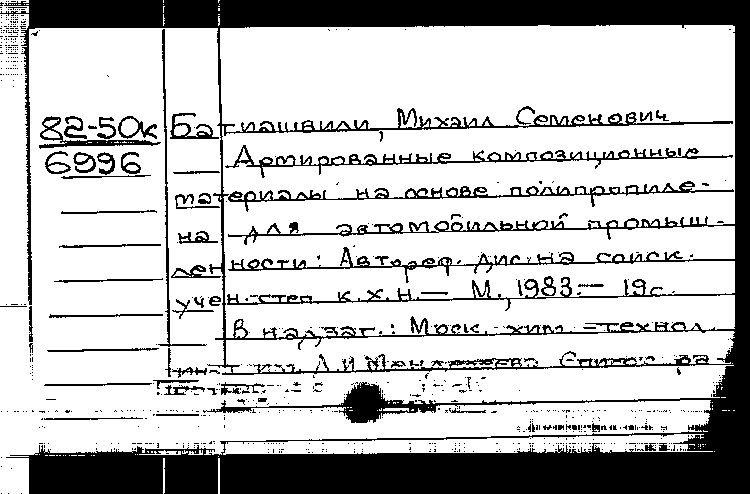 82-50к
6996
Батиашвили, Михаил Семенович
Армированные композиционные
материалы на основе полипропиле-
на для автомобильной промыш-
ленности: Автореф. дис. на соиск.
учен. степ к.х.н. — М., 1983. — 19с.
В надзаг.: Моск. хим.=технол
ин-т им. Д.И Менделеева Список ра-